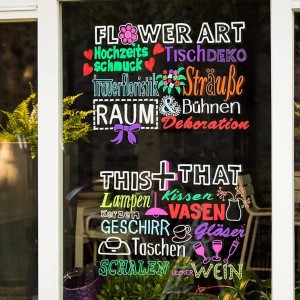 FLOWER ART
Hochzeits TischDEKO
schmuck
Trauerfloristik Sträuße
RAUM & Bühnen
Dekoration
THIS + THAT
Lampen Kissen
Kerzen VASEN
GESCHIRR Gläser
Taschen
SCHALEN LECKER WEIN